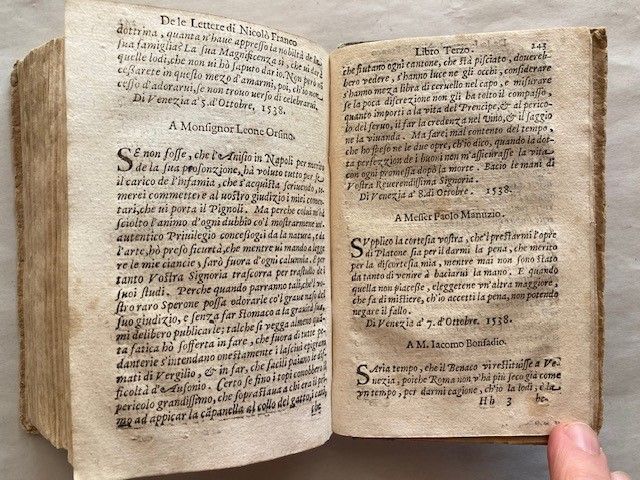 De le Lettere di Nicolò Franco
dottrina, quanta n'haue appresso la nobiltà de la
sua famiglia? La sua Magnificenza sì, che ui darà
quelle lodi, che non ui hò saputo dar io. Non però mi
cessarete in questo mezo d'amarmi, poi, ch'io non
cesso d'adorarui, se non trouo uerso di celebrarui.
Di Venezia a' 5. d'Ottobre, 1538.
A Monsignor Leone Orsino.
SE non fosse, che l'Anisio in Napoli per merito
de la sua prosonzione, hà voluto tutto per se
il carico de l'infamia, che s'acquista scriuendo, te-
merei commettere al uostro giudizio i miei comen-
tari, che ui porta il Pignoli. Ma perche colui m'hà
sciolto l'animo d'ogni dubbio co'l mostrarmene un
autentico Priuilegio concessogli da la natura, e da
l'arte, hò preso sicurtà, che mentre ui mando a legge
re le mie ciancie, sarò fuora d'ogni calunnia, e per
tanto Vostra Signoria trascorra per trastullo de i
suoi studi. Perche quando parranno tali, che'l no-
stro raro Sperone possa odorarle co'l graue naso del
suo giudizio, e senza far stomaco a la grauità sua,
mi delibero publicarle; talche si vegga almeno quan
ta fatica hò sofferta in fare, che fuora di tutte pe-
danterie s'intendano onestamente i lasciui epigram
mati di Vergilio, & in far, che facili paiano le dif-
ficoltà d'Ausonio. Certo se fino i topi conobbero il
pericolo grandissimo, che soprastaua a chi era il pri-
mo ad appicar la campanella al collo del gatto, i cani,
che
Libro Terzo. 243
che fiutano ogni cantone, che stà pisciato, douereb-
bero vedere, s'hanno luce ne gli occhi, considerare
s'hanno meza libra di ceruello nel capo, e misurare
se la poca discrezione non gli ha tolto il compasso,
quanto importi a la vita del Prencipe, & al perico-
lo del seruo, il far la credenza nel vino, & il saggio
ne la viuanda. Ma sarei mal contento del tempo,
che hò speso ne le due opre, ch'io dico, quando la dot-
ta perfezzion de i buoni non m'assicurasse la vita
con ogni promessa dopo la morte. Bacio le mani di
Vostra Reuerendissima Signoria.
Di Venezia a' 8. di Ottobre. 1538.
A Messer Paolo Manuzio.
SVpplico la cortesia vostra, che'l prestarmi l'opre
di Platone sia per il darmi la pena, che merito
per la discortesia mia, mentre mai non sono stato
da tanto di venire à baciarui la mano. E quando
quella non piacesse, eleggetene vn'altra maggiore,
che fa di mistiere, ch'io accetti la pena, non potendo
negare il fallo.
Di Venezia a' 7. d'Ottobre. 1538.
A M. Iacomo Bonfadio.
SAria tempo, che il Benaco vi restituisse a Ve-
nezia, poiche Roma non v'hà più seco già come
vn tempo, per darmi cagione, ch'io la lodi, e la
Hh 3 be-